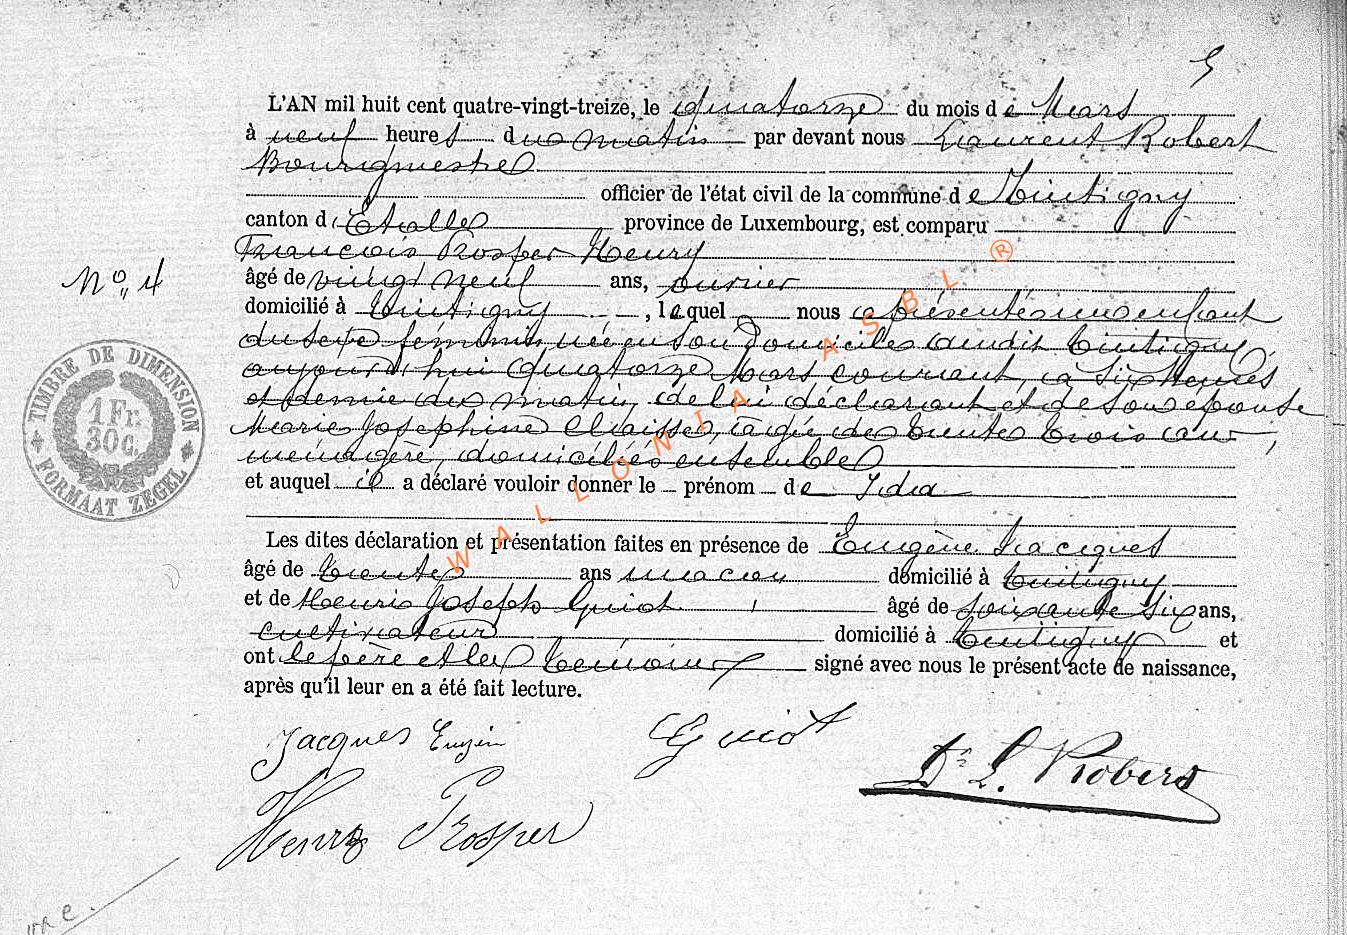 5
L'AN mil huit cent quatre-vingt-treize, le quatorze du mois de Mars
à neuf heures du matin par devant nous Laurent Robert
Bourgmestre
officier de l'état civil de la commune de Tintigny
canton d'Etalle province de Luxembourg, est comparu
François Prosper Henry
No 4
âgé de vingt neuf ans, ouvrier
domicilié à Tintigny, lequel nous a présenté un enfant
du sexe féminin né en son domicile audit Tintigny,
aujourd'hui quatorze Mars courant, à six heures
et demie du matin, de lui déclarant et de son épouse
Marie Josephine Claisse, âgée de trente trois ans,
ménagère, domiciliés ensemble
et auquel il a déclaré vouloir donner le prénom de Ida
Les dites déclaration et présentation faites en présence de Eugène Jacques
âgé de trente ans maçon domicilié à Tintigny
et de Henri Joseph Guiot âgé de soixante six ans,
cultivateur domicilié à Tintigny et
ont le père et les témoins signé avec nous le présent acte de naissance,
après qu'il leur en a été fait lecture.
Jacques Eugèn
Guiot
Dr L. Robert
Henry Prosper
TIMBRE DE DIMENSION
1 Fr.
30 C.
FORMAAT ZEGEL
WALLONIA ASBL ®